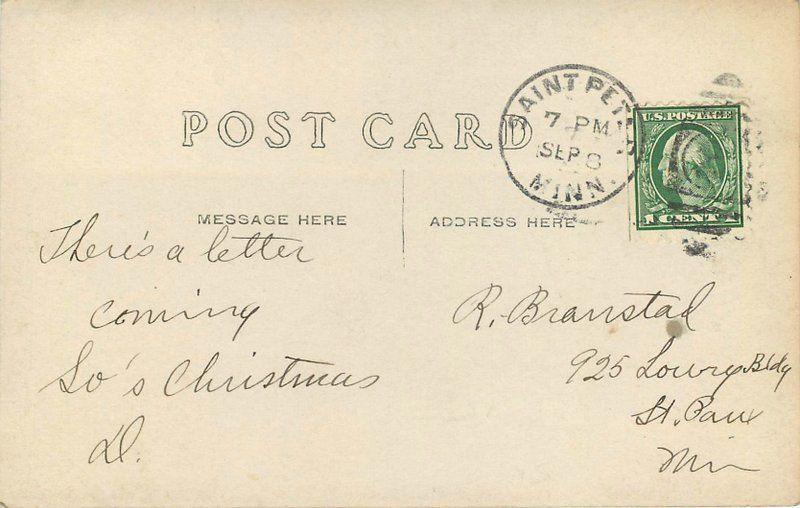 POST CARD
SAINT PETER
7 PM
SEP 8
MINN.
U.S. POSTAGE
1 CENT 1
MESSAGE HERE
ADDRESS HERE
There's a letter
coming
So's Christmas
D.
R. Branstad
925 Lowry Bldg
St. Paul
Min